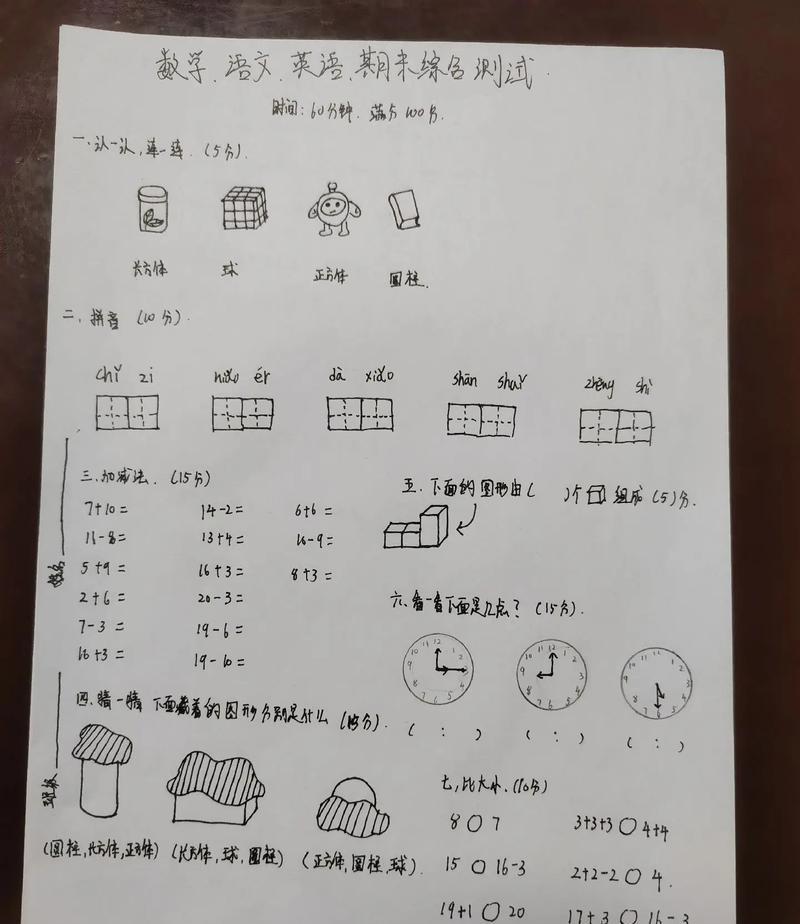 数学、语文、英语、期末综合测试
时间:60分钟. 满分100分.
一、认一认,连一连.(5分).
长方体 球 正方体 圆柱.
二、拼音(10分).
chǐ zi niǎo ér dà xiǎo shān shuǐ zhèng shì
三、加减法.(15分)
7+10= 14-2= 6+6=
11-8= 13+4= 16-9=
5+9= 16+3= 8+3=
2+6= 20-3=
7-3= 19-6=
16+3= 19-10=
姓名
班级
四、猜一猜 下面藏着的图形分别是什么(15分).
(圆柱,长方体,正方体) (长方体,球,圆柱) (正方体,圆柱,球).
五、下面的图形由( )个 组成(5)分.
六、看一看下面是几点?(15分).
10 11 12 1 2 3 4 5 6 7 8 9
10 11 12 1 2 3 4 5 6 7 8 9
10 11 12 1 2 3 4 5 6 7 8 9
( : ) ( : ) ( : )
七,比大小.(10分)
8○7 3+3+3○4+4
15○16-3 2+2-2○4.
19+1○20 17+3○16-3